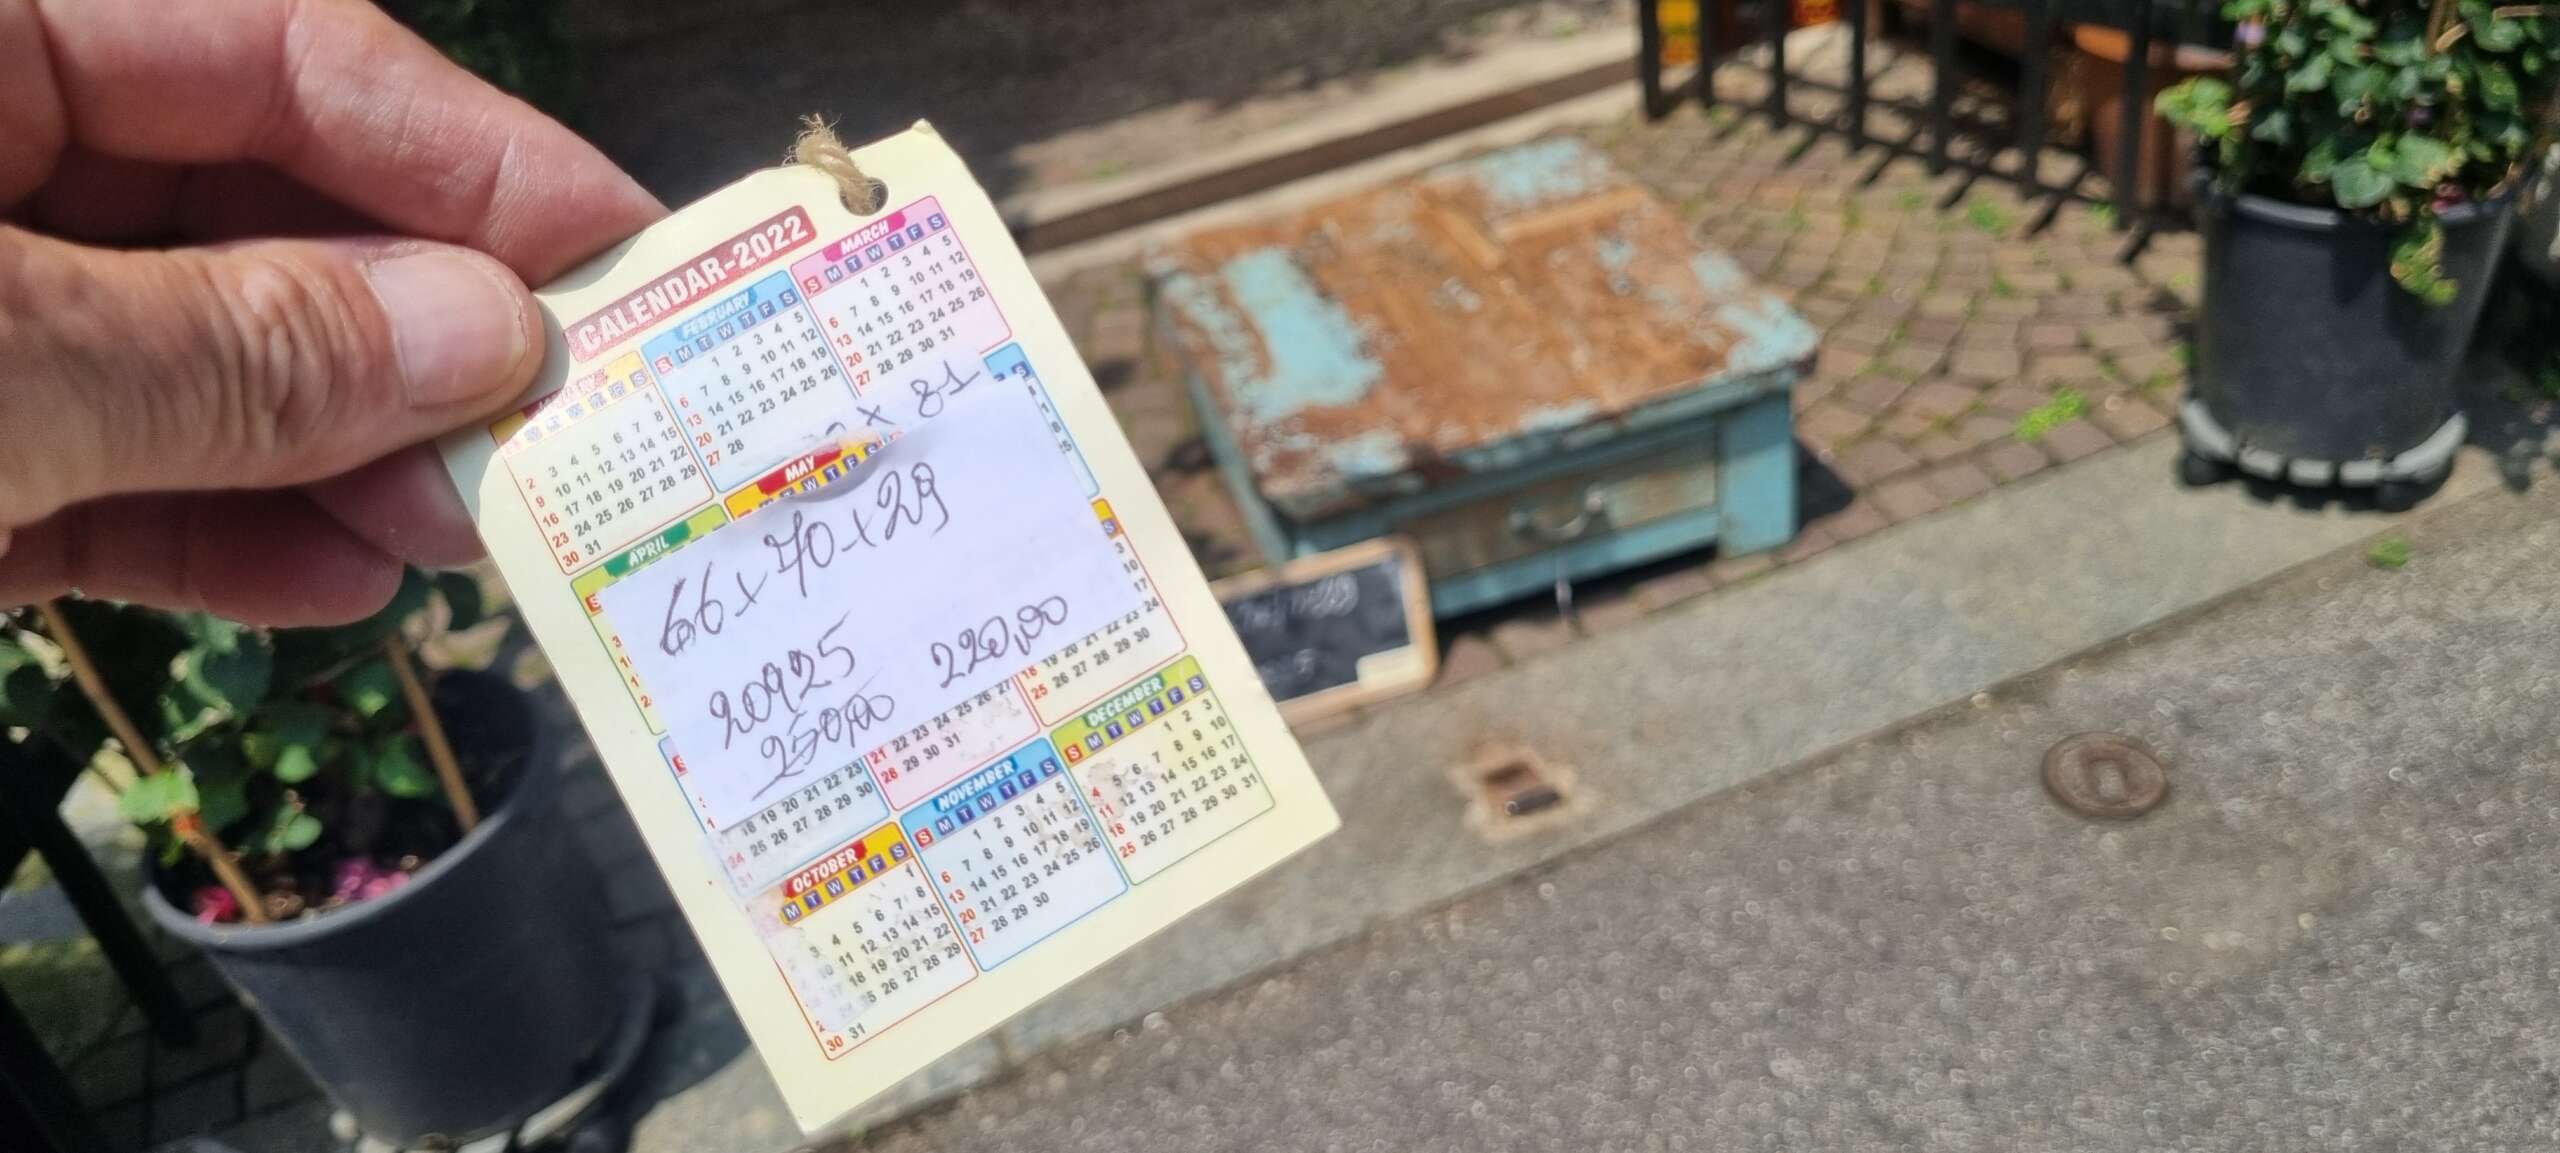 CALENDAR-2022
FEBRUARY
MARCH
S M T W T F S
S M T W T F S
1 2 3 4 5
6 7 8 9 10 11 12
13 14 15 16 17 18 19
20 21 22 23 24 25 26
27 28
1 2 3 4 5
6 7 8 9 10 11 12
13 14 15 16 17 18 19
20 21 22 23 24 25 26
27 28 29 30 31
1
2 3 4 5 6 7 8
9 10 11 12 13 14 15
16 17 18 19 20 21 22
23 24 25 26 27 28 29
30 31
x 81
APRIL
MAY
66 x 70 x 29
20925
250,00 220,00
22 23 24 25 26 27
28 29 30 31
18 19 20 21 22 23 24
25 26 27 28 29 30
18 19 20 21 22 23
24 25 26 27 28 29 30
31
OCTOBER
M T W T F S
1
3 4 5 6 7 8
10 11 12 13 14 15
17 18 19 20 21 22
24 25 26 27 28 29
30 31
NOVEMBER
S M T W T F S
1 2 3 4 5
6 7 8 9 10 11 12
13 14 15 16 17 18 19
20 21 22 23 24 25 26
27 28 29 30
DECEMBER
S M T W T F S
1 2 3
4 5 6 7 8 9 10
11 12 13 14 15 16 17
18 19 20 21 22 23 24
25 26 27 28 29 30 31